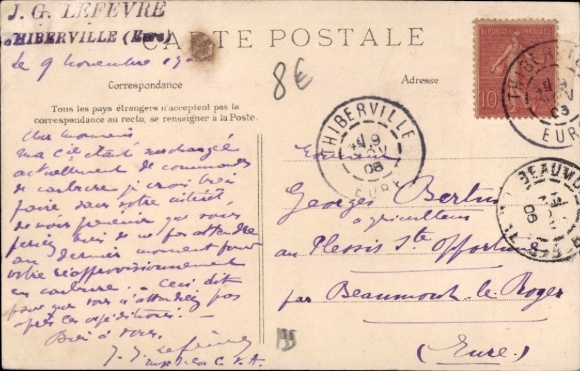 J. G. LEFEVRE
THIBERVILLE (Eure)
CARTE POSTALE
Le 9 novembre
8€
Correspondance
Adresse
Tous les pays étrangers n'acceptent pas la
correspondance au recto, se renseigner à la Poste.
REPUBLIQUE FRANÇAISE
10
THIBERVILLE
EURE
THIBERVILLE
EURE
BEAUMO
Monsieur
Ma Cie étant surchargée
actuellement de commandes
de carbure je crois bien
faire dans votre intérêt,
de vous prévenir que vous
ferez bien de ne pas attendre
au dernier moment pour
votre réapprovisionnement
en carbure. - Ceci dit
pour que vous n'attendiez pas
après les expéditions. -
Bien à vous,
J. G. Lefèvre
Monsieur
Georges Bertin
agriculteur
au Plessis Ste Opportune
par Beaumont-le-Roger
(Eure)